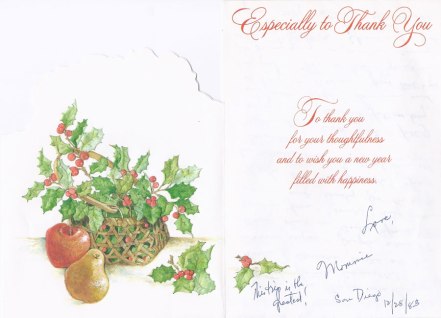 Especially to Thank You
To thank you
for your thoughtfulness
and to wish you a new year
filled with happiness.
Love,
This trip is the
greatest!
San Diego